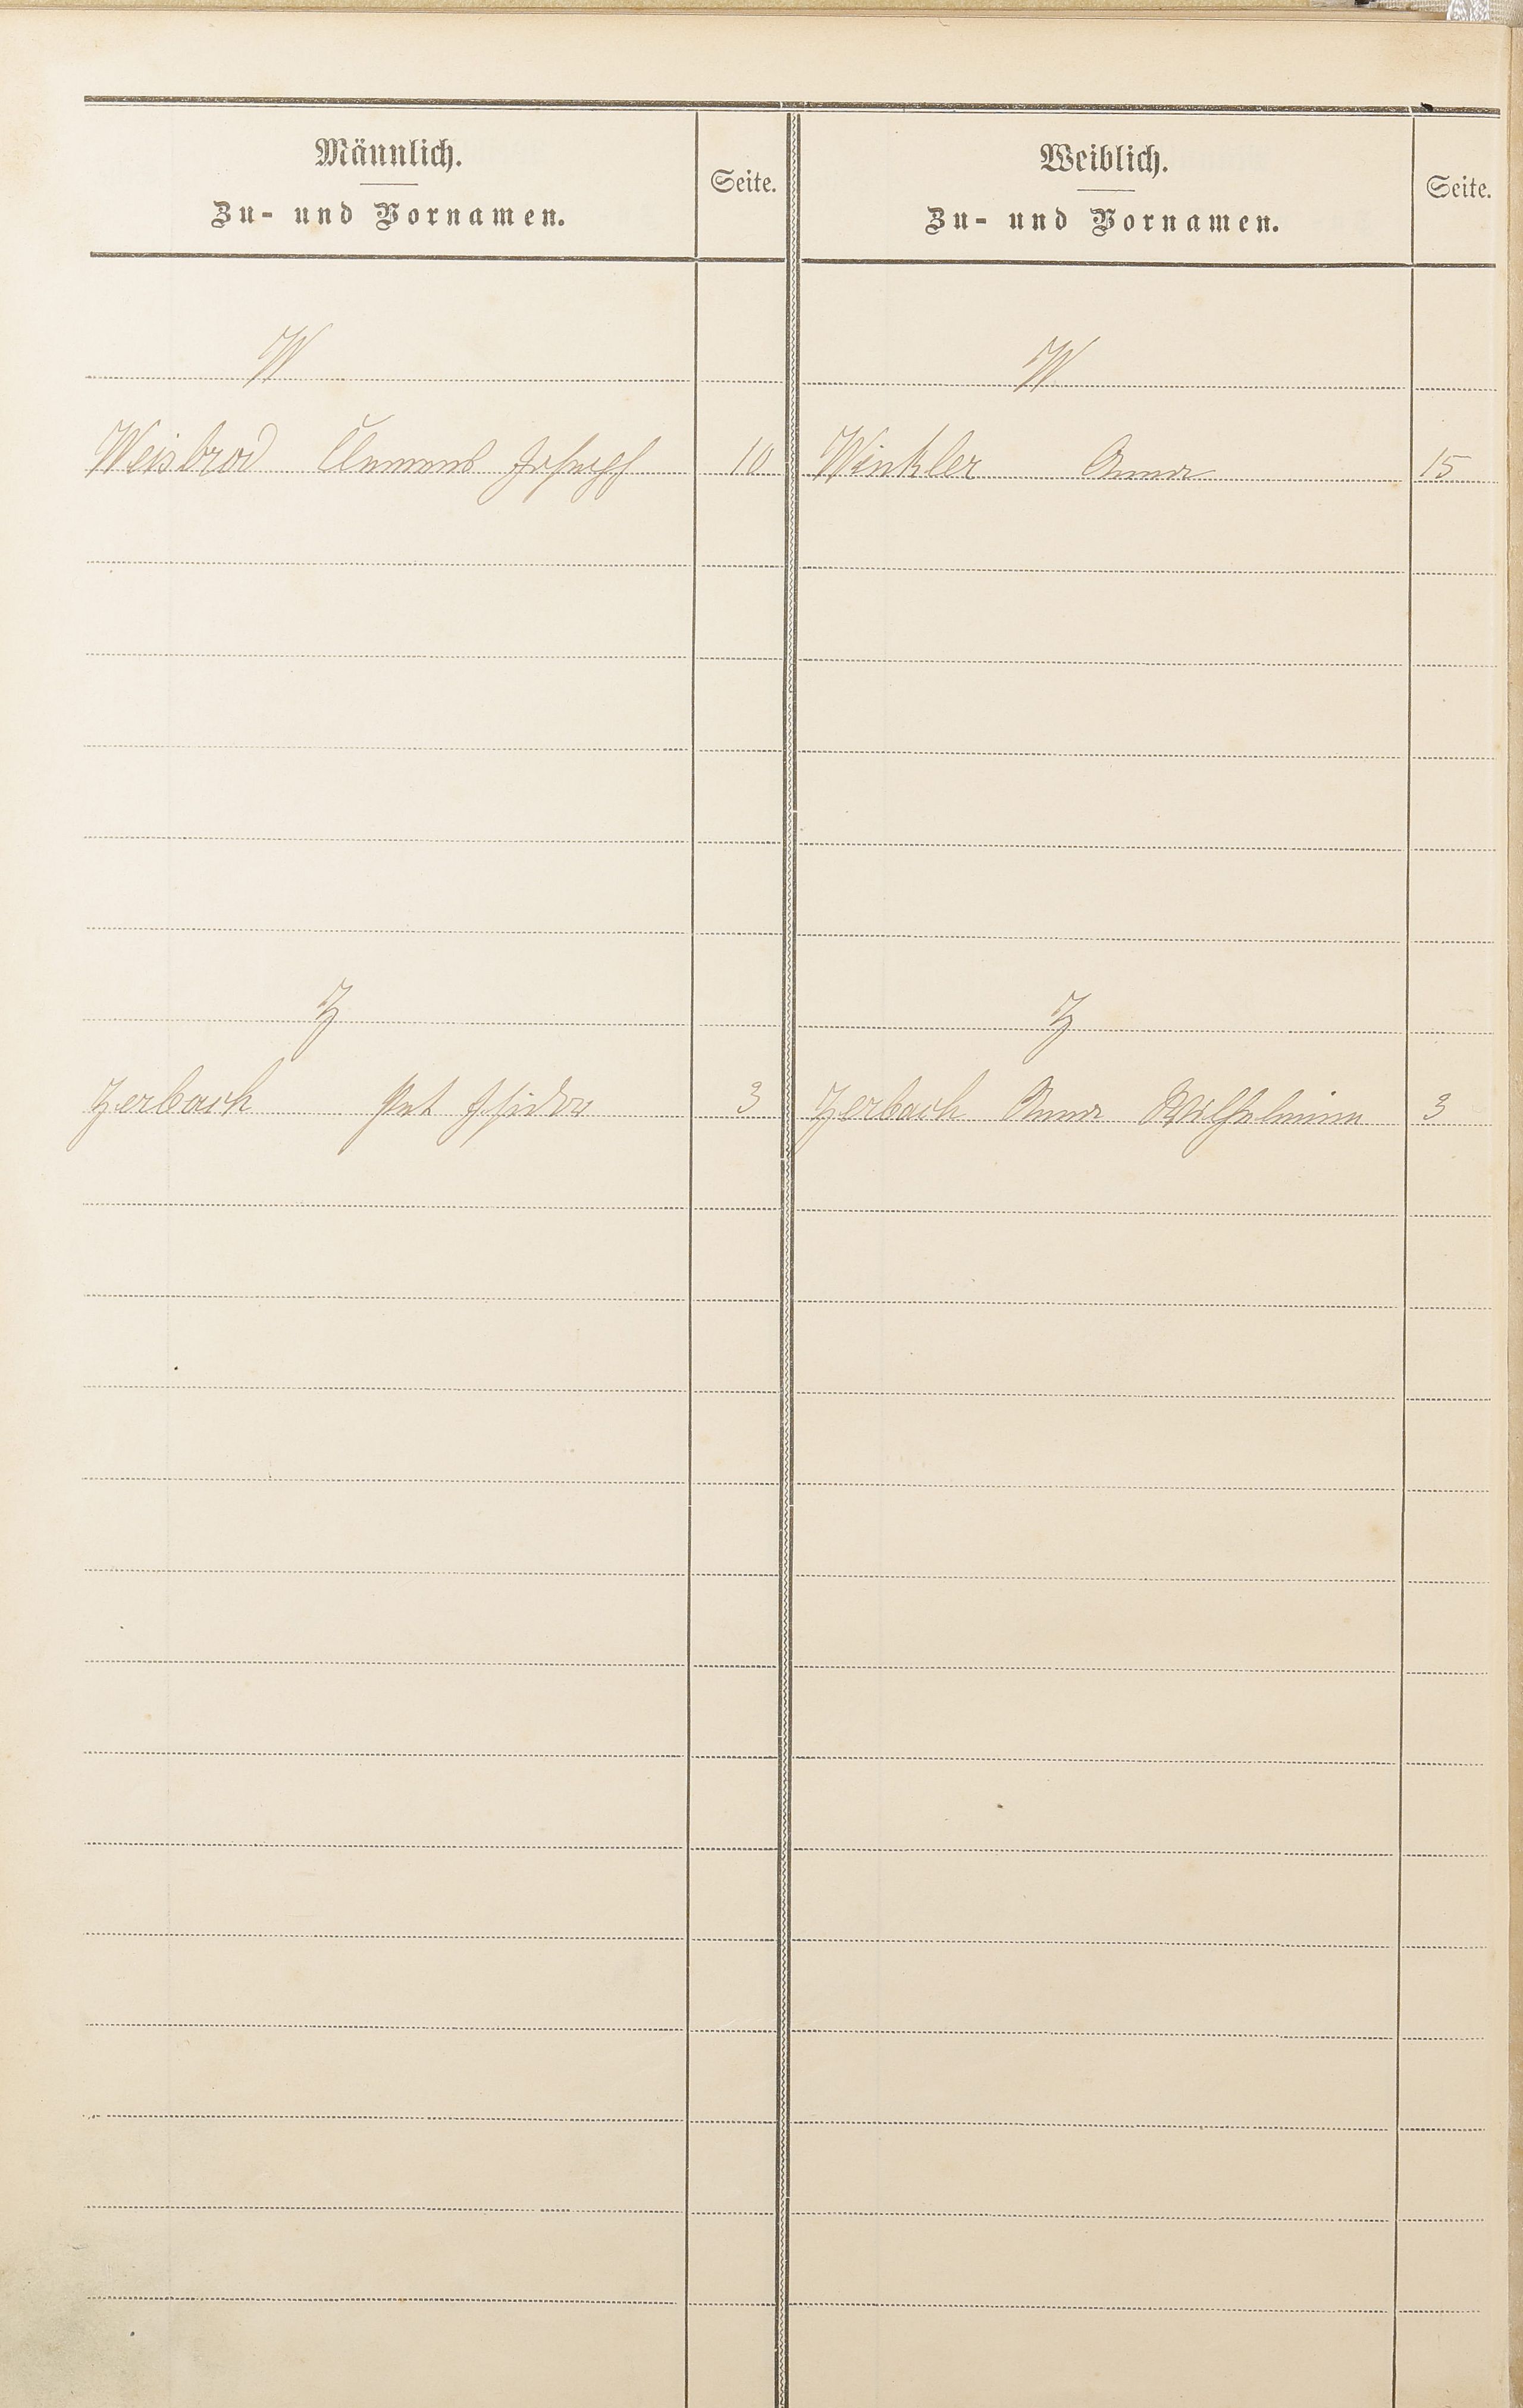 Männlich.
Zu- und Vornamen.
Seite.
Weiblich.
Zu- und Vornamen.
Seite.
W
W
Weisbrod Clemens Joseph 10
Winkler Anna 15
Z
Z
Zerbach Isidor 3
Zerbach Anna Wilhelmina 3